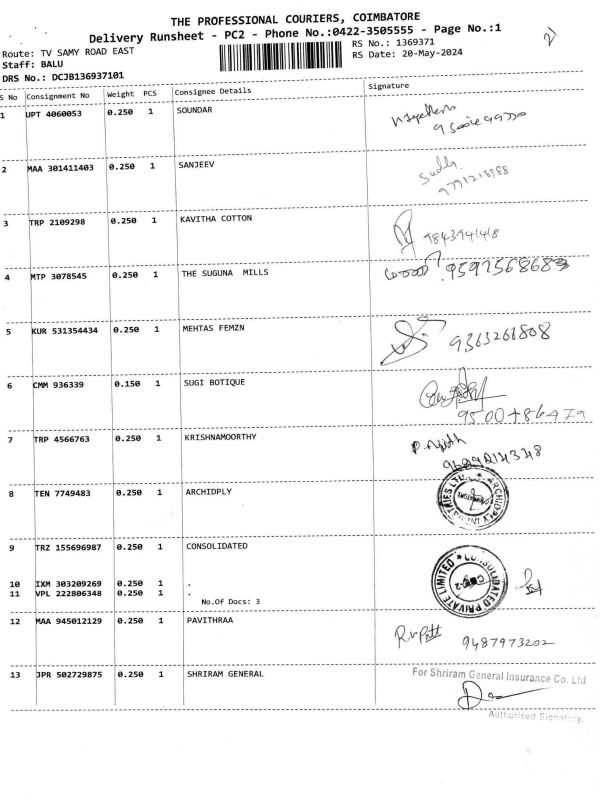 THE PROFESSIONAL COURIERS, COIMBATORE
Delivery Runsheet - PC2 - Phone No.:0422-3505555 - Page No.:1
Route: TV SAMY ROAD EAST
RS No.: 1369371
Staff: BALU
RS Date: 20-May-2024
DRS No.: DCJB136937101
S No Consignment No Weight PCS Consignee Details Signature
1 UPT 4060053 0.250 1 SOUNDAR
2 MAA 301411403 0.250 1 SANJEEV
3 TRP 2109298 0.250 1 KAVITHA COTTON
9843941418
4 MTP 3078545 0.250 1 THE SUGUNA MILLS
5 KUR 531354434 0.250 1 MEHTAS FEMZN
9363266808
6 CMM 936339 0.150 1 SUGI BOTIQUE
7 TRP 4566763 0.250 1 KRISHNAMOORTHY
P. Ajith
8 TEN 7749483 0.250 1 ARCHIDPLY
9 TRZ 155696987 0.250 1 CONSOLIDATED
CONSOLIDATED PRIVATE LIMITED
10 IXM 303209269 0.250 1 .
11 VPL 222806348 0.250 1 .
No.Of Docs: 3
12 MAA 945012129 0.250 1 PAVITHRAA
9487973202
13 JPR 502729875 0.250 1 SHRIRAM GENERAL
For Shriram General Insurance Co. Ltd
Authorised Signatory.